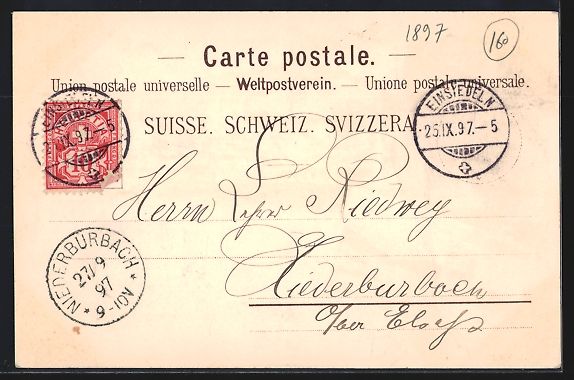 1897
160
Carte postale.
Union postale universelle — Weltpostverein. — Unione postale universale.
SUISSE. SCHWEIZ. SVIZZERA.
EINSIEDELN
IX.97.
10
EINSIEDELN
25.IX.97.–5
Herrn Lehrer Riedweg
Niederburbach
Ober Elsass
* NIEDERBURBACH *
27/9
97
6-7N